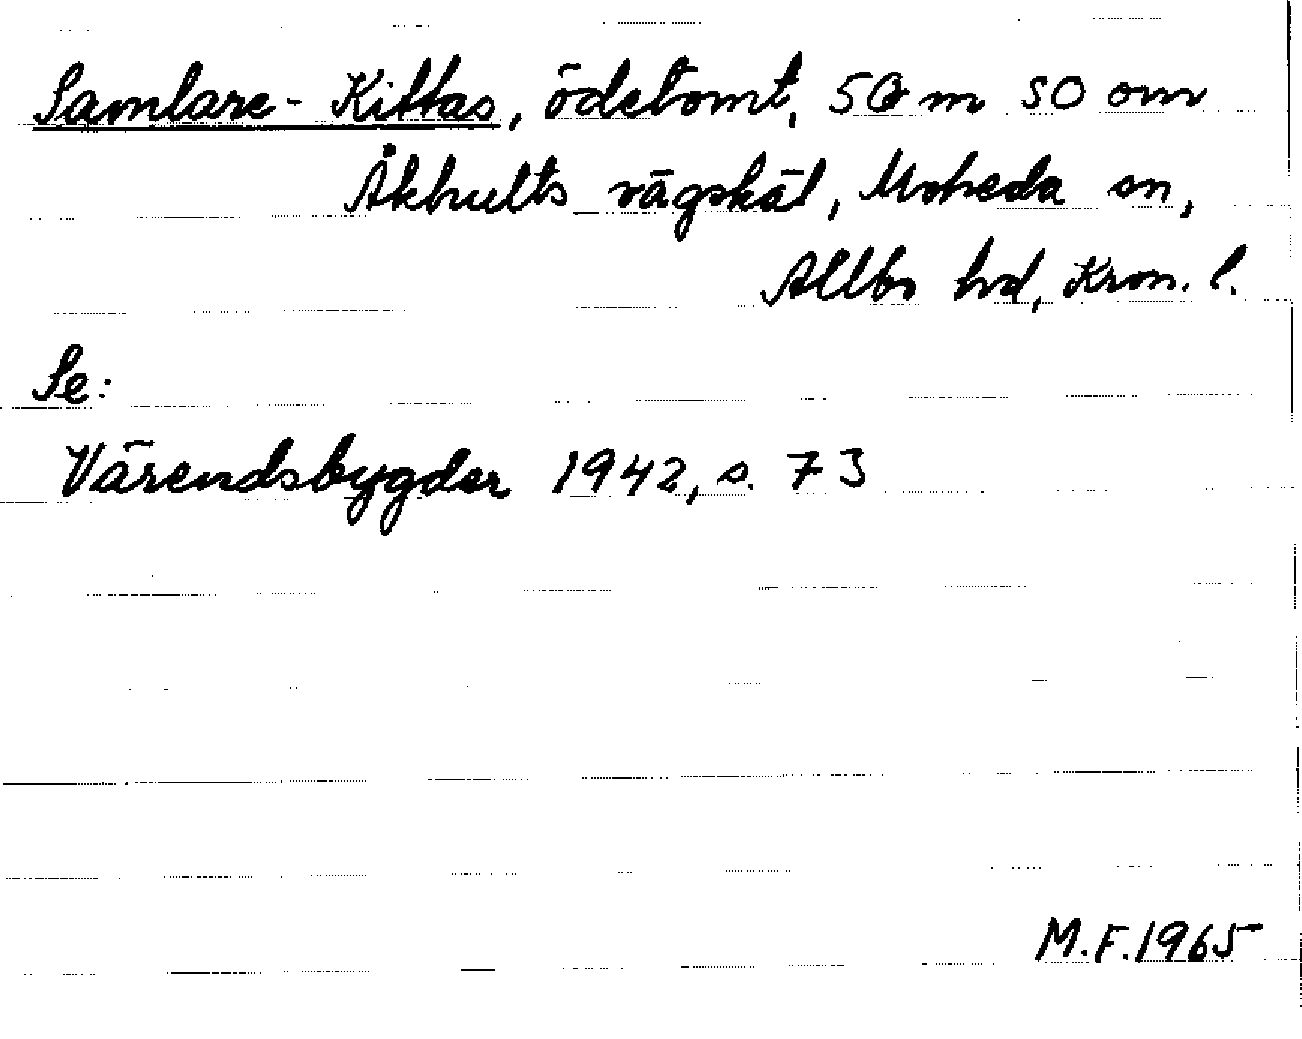 Samlare-Kittas, ödetomt, 50 m SO om
Åkhults vägskäl, Moheda sn,
Allbo hd, Kron. l.
Se:
Värendsbygder 1942, s. 73
M.F.1965